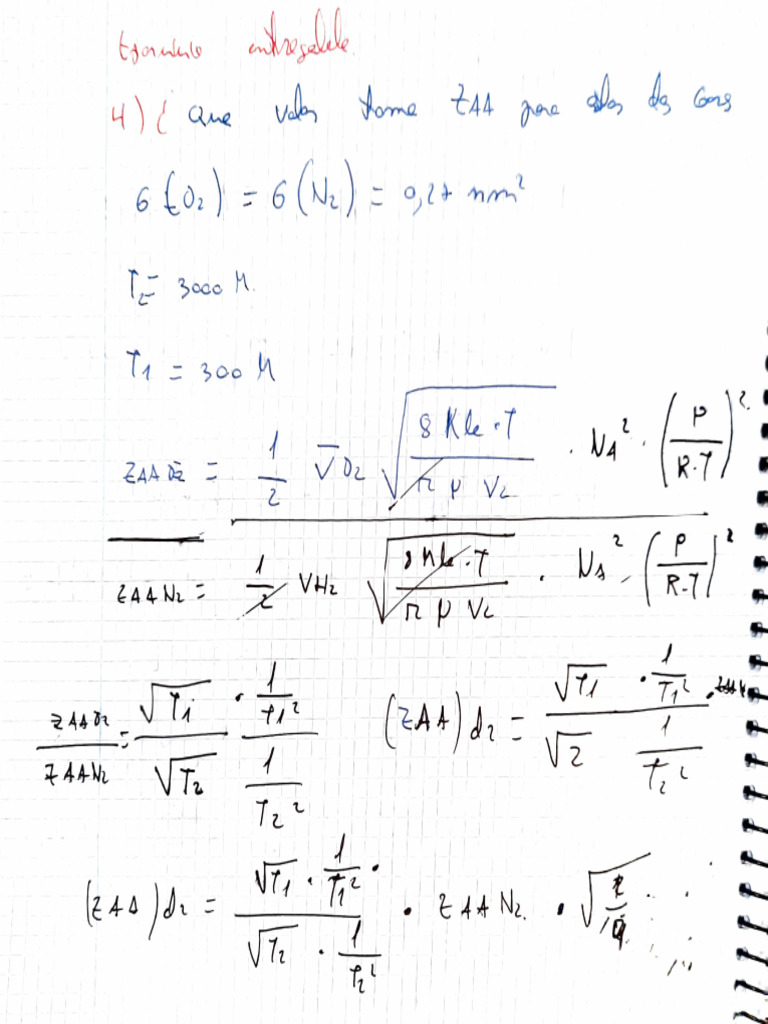 Ejercicio entregable
4) ¿ Que valor toma ZAA para dos gas
σ(O₂) = σ(N₂) = 0,27 nm²
T₂ = 3000 K.
T1 = 300 K
ZAA O₂ = 1/2 V̄O₂ √(8 Kb·T / π μ V₂) · NA² · (P/R·T)²
ZAA N₂ = 1/2 VN₂ √(8 Kb·T / π μ V₂) · NA² · (P/R·T)²
ZAAO₂/ZAAN₂ = √T1/√T₂ · (1/T1²)/(1/T₂²) (ZAA)d₂ = (√T1 · 1/T1²)/(√2 1/T₂²) ·
(ZAA)d₂ = (√T1 · 1/T1² ·)/(√T₂ · 1/T₂²) · ZAAN₂ ·